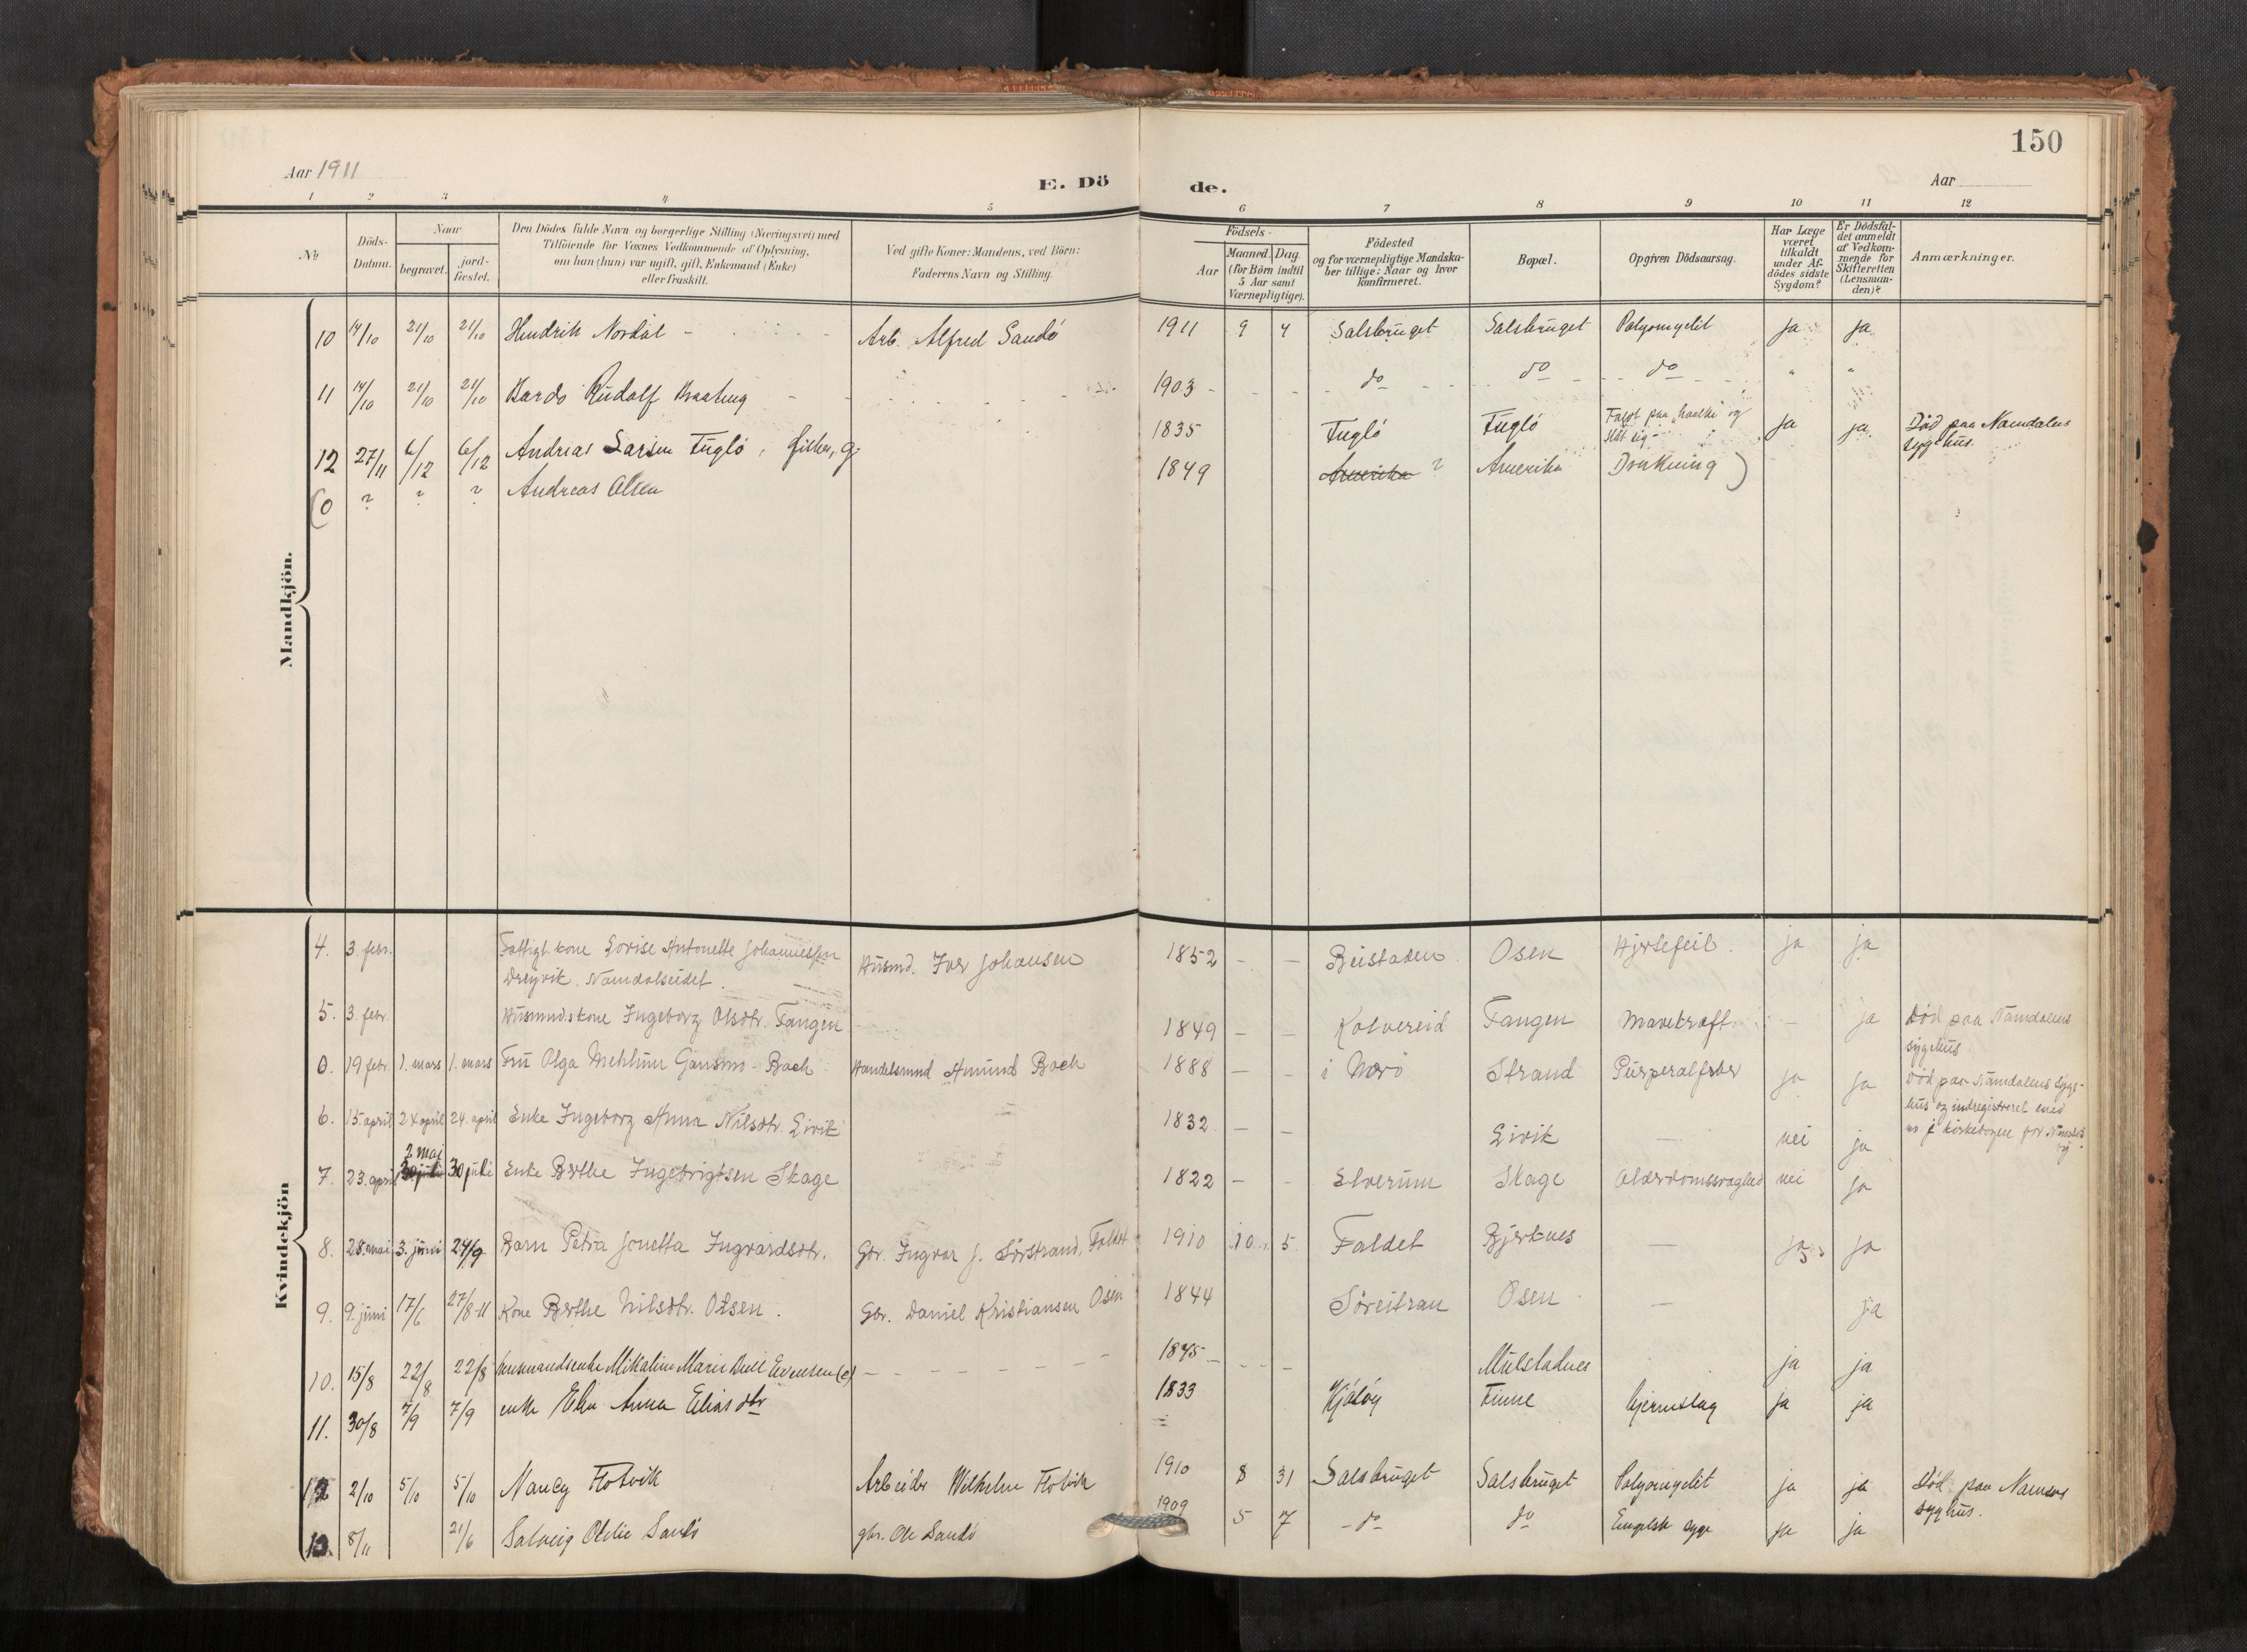 150
Aar 1911
E. Dö
de.
Aar
1 2 3 4 5 6 7 8 9 10 11 12
No
Döds-
Datum.
Naar
begravet.
jord-
fæstet.
Den Dödes fulde Navn og borgerlige Stilling (Næringsvei) med
Tilföiende for Voxnes Vedkommende af Oplysning,
om han (hun) var ugift, gift, Enkemand (Enke)
eller fraskilt.
Ved gifte Koner: Mandens, ved Börn:
Faderens Navn og Stilling.
Födsels-
Aar
Maaned. Dag
(for Börn indtil
5 Aar samt
Værnepligtige).
Födested
og for værnepligtige Mandska-
ber tillige: Naar og hvor
konfirmeret.
Bopæl.
Opgiven Dödsaarsag.
Har Læge
været
tilkaldt
under Af-
dödes sidste
Sygdom?
Er Dödsfal-
det anmeldt
af Vedkom-
mende for
Skifteretten
(Lensman-
den)?
Anmærkninger.
Mandkjön.
10 14/10 21/10 21/10 Hendrik Nordal - Arb. Alfred Sandö 1911 9 4 Salsbruget Salsbruget Polyomyelit ja ja
11 14/10 21/10 21/10 Rudolf 1903 - do do do " "
12 27/11 6/12 6/12 Andreas Larsen Fuglö, fisker, g. 1835 Fuglö Fuglö Faldt paa "haalke" og
slåt sig - ja ja Död paa Namdalens
sygehus.
(0 ? ? ? Andreas Olsen 1849 Amerika ? Amerika Drukning )
Kvindekjön
4. 3. febr. Fattigl. kone Lovise Antonette Johannessen
Namdalseidet. Husmd. Iver Johansen 1852 - - Beistaden Osen Hjertefeil. ja ja
5. 3. febr. Husmandskone Ingeborg Olsdtr. Fangen 1849 - - Kolvereid Fangen Mavekræft. - ja Död paa Namdalens
sygehus
0. 19 febr. 1. mars 1. mars Fru Olga Mehlum Gansmo - Bach Handelsmnd Amund Bach 1888 - - i Nærö Strand Puerperalfeber ja ja Död paa Namdalens syge-
hus og indregistreret med
no i kirkebogen for Namsos
by.
6. 15. april 24 april 24. april Enke Ingeborg Anna Nilsdtr. Eivik 1832 - - Eivik - nei ja
2 mai
7. 23. april 30 juli 30 juli Enke Berthe Ingebrigtsen Skage 1822 - - Elverum Skage Alderdomssvaghed nei ja
8. 28. mai 3. juni 24/9 Barn Petra Jonetta Ingvardsdtr. Gbr. Ingvar J. Sörstrand, Faldet 1910 10 5 Faldet Bjerknes - ja ja
9. 9. juni 17/6 27/8-11 Kone Berthe Nilsdtr. Otsen. Gbr. Daniel Kristiansen Osen 1844 Osen - ja
10. 15/8 22/8 22/8 husmandsenke Mikaline Marie (e) - 1845 - - - ja ja
11. 30/8 7/9 7/9 enke Elen Anna Eliasdtr 1833 Finne hjerneslag ja ja
12 2/10 5/10 5/10 Nancy Flotvik Arbeider Wilhelm Flotvik 1910 8 31 Salsbruget Salsbruget Polyomyelit ja ja Död paa Namsos
sygehus.
13. 8/11 21/6 Solveig Otilie Sandö gbr. Ole Sandö 1909 5 7 - do do Engelsk syge ja ja